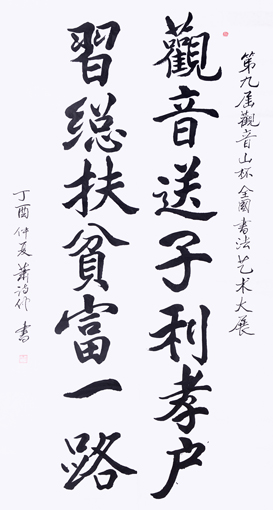 第九届觀音山杯全國书法艺术大展
觀音送子利孝户
習總扶貧富一路
丁酉仲夏 萧 书